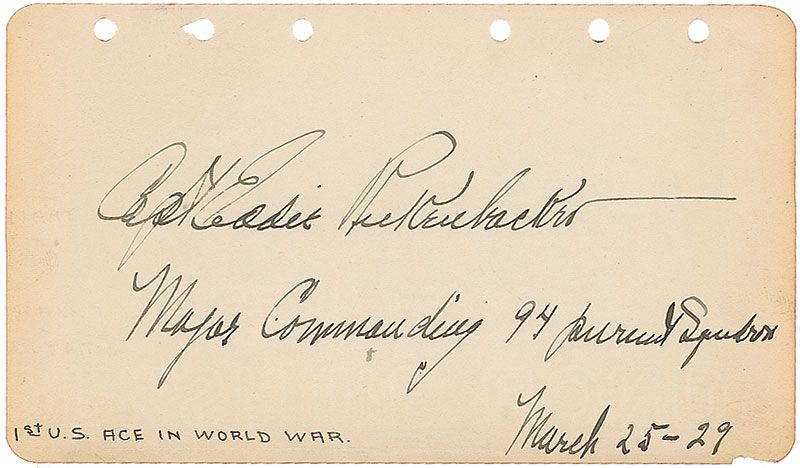 Capt Eddie Rickenbacker
Major Commanding 94 pursuit Squadron
March 25-29
1st U.S. ACE IN WORLD WAR.